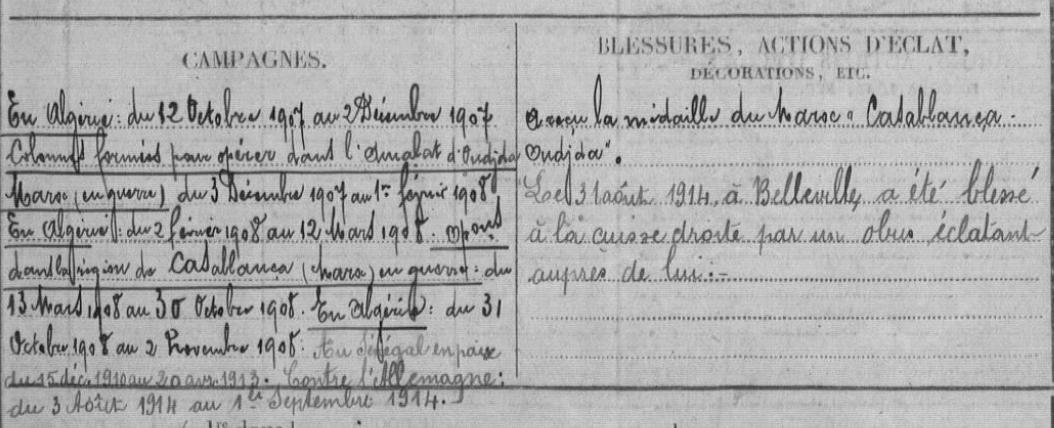 CAMPAGNES.
En Algérie: du 12 Octobre 1907 au 2 Décembre 1907
Colonnes formées pour opérer dans l'Amalat d'Oudjda
Maroc (en guerre) du 3 Décembre 1907 au 1er février 1908
En Algérie: du 2 février 1908 au 12 Mars 1908. Opons
dans la région de Casablanca (Maroc) en guerre: du
13 Mars 1908 au 30 Octobre 1908. En Algérie: du 31
Octobre 1908 au 2 Novembre 1908. Au Sénégal en paix
du 15 déc. 1910 au 20 avr. 1913. Contre l'Allemagne:
du 3 Août 1914 au 1er Septembre 1914.
BLESSURES, ACTIONS D'ÉCLAT,
DÉCORATIONS, ETC.
A reçu la médaille du Maroc "Casablanca-
Oudjda".
Le 31 août 1914, à Belleville, a été blessé
à la cuisse droite par un obus éclatant
auprès de lui:-